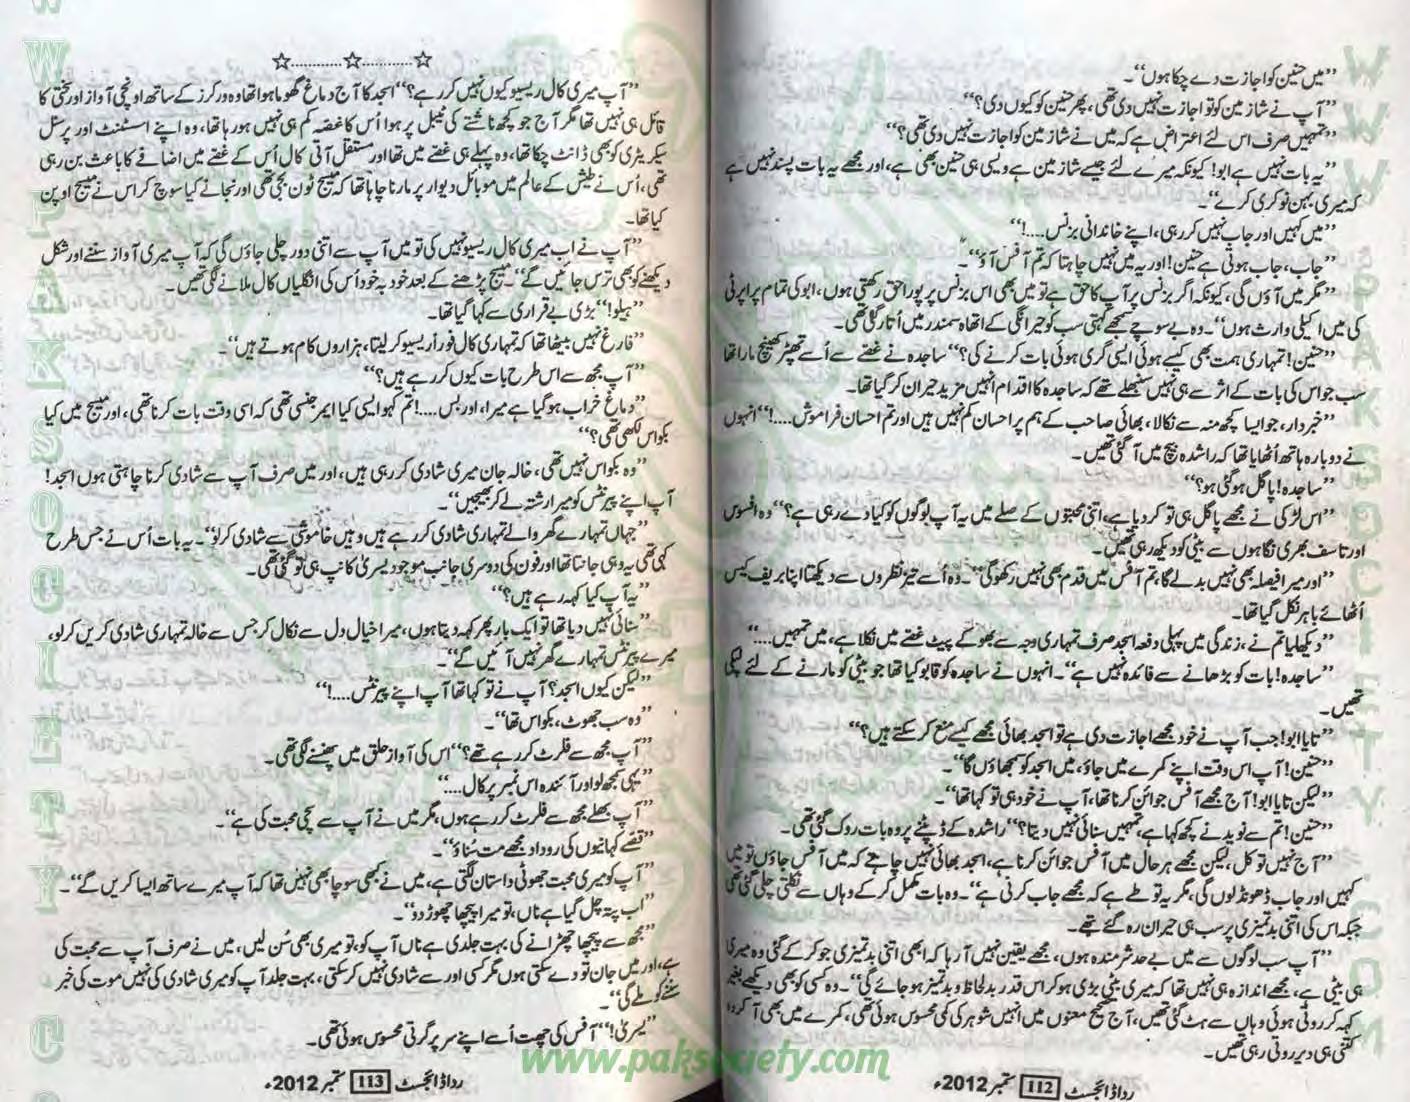 ”میں حنین کو اجازت دے چکا ہوں“۔
”آپ نے شازمین کو تو اجازت نہیں دی تھی، پھر حنین کو کیوں دی؟“
”تمہیں صرف اس لئے اعتراض ہے کہ میں نے شازمین کو اجازت نہیں دی تھی؟“
”یہ بات نہیں ہے ابو! کیونکہ میرے لئے جیسے شازمین ہے ویسی ہی حنین بھی ہے، اور مجھے یہ بات پسند نہیں ہے
کہ میری بہن نوکری کرے“۔
”میں کہیں اور جاب نہیں کر رہی، اپنے خاندانی بزنس....!“
”جاب، جاب ہوتی ہے حنین! اور یہ میں نہیں چاہتا کہ تم آفس آؤ“۔
”مگر میں آؤں گی، کیونکہ اگر بزنس پر آپ کا حق ہے تو میں بھی اس بزنس پر پورا حق رکھتی ہوں، ابو کی تمام پراپرٹی
کی میں اکیلی وارث ہوں“۔ وہ بے سوچے سمجھے کہتی سب کو حیرانگی کے اتھاہ سمندر میں اُتار گئی تھی۔
”حنین! تمہاری ہمت بھی کیسے ہوئی ایسی گری ہوئی بات کرنے کی؟“ ساجدہ نے غصے سے اُسے تھپڑ کھینچ مارا تھا
سب جو اس کی بات کے اثر سے ہی نہیں سنبھلے تھے کہ ساجدہ کا اقدام انہیں مزید حیران کر گیا تھا۔
”خبردار، جو ایسا کچھ منہ سے نکالا، بھائی صاحب کے ہم پر احسان کم نہیں ہیں اور تم احسان فراموش....!“ انہوں
نے دوبارہ ہاتھ اُٹھایا تھا کہ راشدہ بیچ میں آ گئی تھیں۔
”ساجدہ! پاگل ہو گئی ہو؟“
”اس لڑکی نے مجھے پاگل ہی تو کر دیا ہے، اتنی محبتوں کے صلے میں یہ آپ لوگوں کو کیا دے رہی ہے؟“ وہ افسوس
اور تاسف بھری نگاہوں سے بیٹی کو دیکھ رہی تھیں۔
”اور میرا فیصلہ بھی نہیں بدلے گا، تم آفس میں قدم بھی نہیں رکھو گی“۔ وہ اُسے تیز نظروں سے دیکھتا اپنا بریف کیس
اُٹھائے باہر نکل گیا تھا۔
”دیکھ لیا تم نے، زندگی میں پہلی دفعہ امجد صرف تمہاری وجہ سے بھوکے پیٹ غصے میں نکلا ہے، میں تمہیں....“
”ساجدہ! بات کو بڑھانے سے فائدہ نہیں ہے“۔ انہوں نے ساجدہ کو قابو کیا تھا جو بیٹی کو مارنے کے لئے لپکی
تھیں۔
”تایا ابو! جب آپ نے خود مجھے اجازت دی ہے تو امجد بھائی مجھے کیسے منع کر سکتے ہیں؟“
”حنین! آپ اس وقت اپنے کمرے میں جاؤ، میں امجد کو سمجھاؤں گا“۔
”لیکن تایا ابو! آج مجھے آفس جوائن کرنا تھا، آپ نے خود ہی تو کہا تھا“۔
”حنین! تم سے نوید نے کچھ کہا ہے، تمہیں سنائی نہیں دیتا؟“ راشدہ کے ڈپٹنے پر وہ بات روک گئی تھی۔
”آج نہیں تو کل، لیکن مجھے ہر حال میں آفس جوائن کرنا ہے، امجد بھائی نہیں چاہتے کہ میں آفس جاؤں تو میں
کہیں اور جاب ڈھونڈ لوں گی، مگر یہ تو طے ہے کہ مجھے جاب کرنی ہے“۔ وہ بات مکمل کر کے وہاں سے نکلتی چلی گئی تھی
جبکہ اس کی اتنی بدتمیزی پر سب ہی حیران رہ گئے تھے۔
”آپ سب لوگوں سے میں بے حد شرمندہ ہوں، مجھے یقین نہیں آ رہا کہ ابھی اتنی بدتمیزی جو کر کے گئی وہ میری
ہی بیٹی ہے، مجھے اندازہ ہی نہیں تھا کہ میری بیٹی بڑی ہو کر اس قدر بد لحاظ و بدتمیز ہو جائے گی“۔ وہ کسی کو بھی دیکھے بغیر
کہہ کر روتی ہوئی وہاں سے ہٹ گئی تھیں، آج صحیح معنوں میں انہیں شوہر کی کمی محسوس ہوئی تھی، کمرے میں بھی آ کر وہ
کتنی ہی دیر روتی رہی تھیں۔
رداڈائجسٹ 112 ستمبر 2012ء
☆............☆............☆
”آپ میری کال ریسیو کیوں نہیں کر رہے؟“ امجد کا آج دماغ گھوما ہوا تھا وہ ورکرز کے ساتھ اونچی آواز اور سختی کا
قائل ہی نہیں تھا مگر آج جو کچھ ناشتے کی ٹیبل پر ہوا اُس کا غصہ کم ہی نہیں ہو رہا تھا، وہ اپنے اسسٹنٹ اور پرسنل
سیکریٹری کو بھی ڈانٹ چکا تھا، وہ پہلے ہی غصے میں تھا اور مستقل آتی کال اُس کے غصے میں اضافے کا باعث بن رہی
تھی، اُس نے طیش کے عالم میں موبائل دیوار پر مارنا چاہا تھا کہ میسج ٹون بجی تھی اور نجانے کیا سوچ کر اس نے میسج اوپن
کیا تھا۔
”آپ نے اب میری کال ریسیو نہیں کی تو میں آپ سے اتنی دور چلی جاؤں گی کہ آپ میری آواز سننے اور شکل
دیکھنے کو بھی ترس جائیں گے“۔ میسج پڑھنے کے بعد خود بہ خود اُس کی انگلیاں کال ملانے لگی تھیں۔
”ہیلو!“ بڑی بے قراری سے کہا گیا تھا۔
”فارغ نہیں بیٹھا تھا کہ تمہاری کال فوراً ریسیو کر لیتا، ہزاروں کام ہوتے ہیں“۔
”آپ مجھ سے اس طرح بات کیوں کر رہے ہیں؟“
”دماغ خراب ہو گیا ہے میرا، اور بس....! تم کہو ایسی کیا ایمرجنسی تھی کہ اسی وقت بات کرنا تھی، اور میسج میں کیا
بکواس لکھی تھی؟“
”وہ بکواس نہیں تھی، خالہ جان میری شادی کر رہی ہیں، اور میں صرف آپ سے شادی کرنا چاہتی ہوں امجد!
آپ اپنے پیرنٹس کو میرا رشتہ لے کر بھیجیں“۔
”جہاں تمہارے گھر والے تمہاری شادی کر رہے ہیں وہیں خاموشی سے شادی کر لو“۔ یہ بات اُس نے جس طرح
کہی تھی یہ وہی جانتا تھا اور فون کی دوسری جانب موجود یسریٰ کانپ ہی تو گئی تھی۔
”یہ آپ کیا کہہ رہے ہیں؟“
”سنائی نہیں دیا تھا تو ایک بار پھر کہہ دیتا ہوں، میرا خیال دل سے نکال کر جس سے خالہ تمہاری شادی کریں کر لو،
میرے پیرنٹس تمہارے گھر نہیں آئیں گے“۔
”لیکن کیوں امجد؟ آپ نے تو کہا تھا آپ اپنے پیرنٹس....!“
”وہ سب جھوٹ، بکواس تھا“۔
”آپ مجھ سے فلرٹ کر رہے تھے؟“ اس کی آواز حلق میں پھنسنے لگی تھی۔
”یہی سمجھ لو اور آئندہ اس نمبر پر کال....“
”آپ بھلے مجھ سے فلرٹ کر رہے ہوں، مگر میں نے آپ سے سچی محبت کی ہے“۔
”قصے کہانیوں کی روداد مجھے مت سُناؤ“۔
”آپ کو میری محبت جھوٹی داستان لگتی ہے، میں نے کبھی سوچا بھی نہیں تھا کہ آپ میرے ساتھ ایسا کریں گے“۔
”اب پتہ چل گیا ہے ناں، تو میرا پیچھا چھوڑ دو“۔
”مجھ سے پیچھا چھڑانے کی بہت جلدی ہے ناں آپ کو، تو میری بھی سُن لیں، میں نے صرف آپ سے محبت کی
ہے، اور میں جان تو دے سکتی ہوں مگر کسی اور سے شادی نہیں کر سکتی، بہت جلد آپ کو میری شادی کی نہیں موت کی خبر
سننے کو ملے گی“۔
”یسریٰ!“ آفس کی چھت اُسے اپنے سر پر گرتی محسوس ہوئی تھی۔
رداڈائجسٹ 113 ستمبر 2012ء
www.paksociety.com